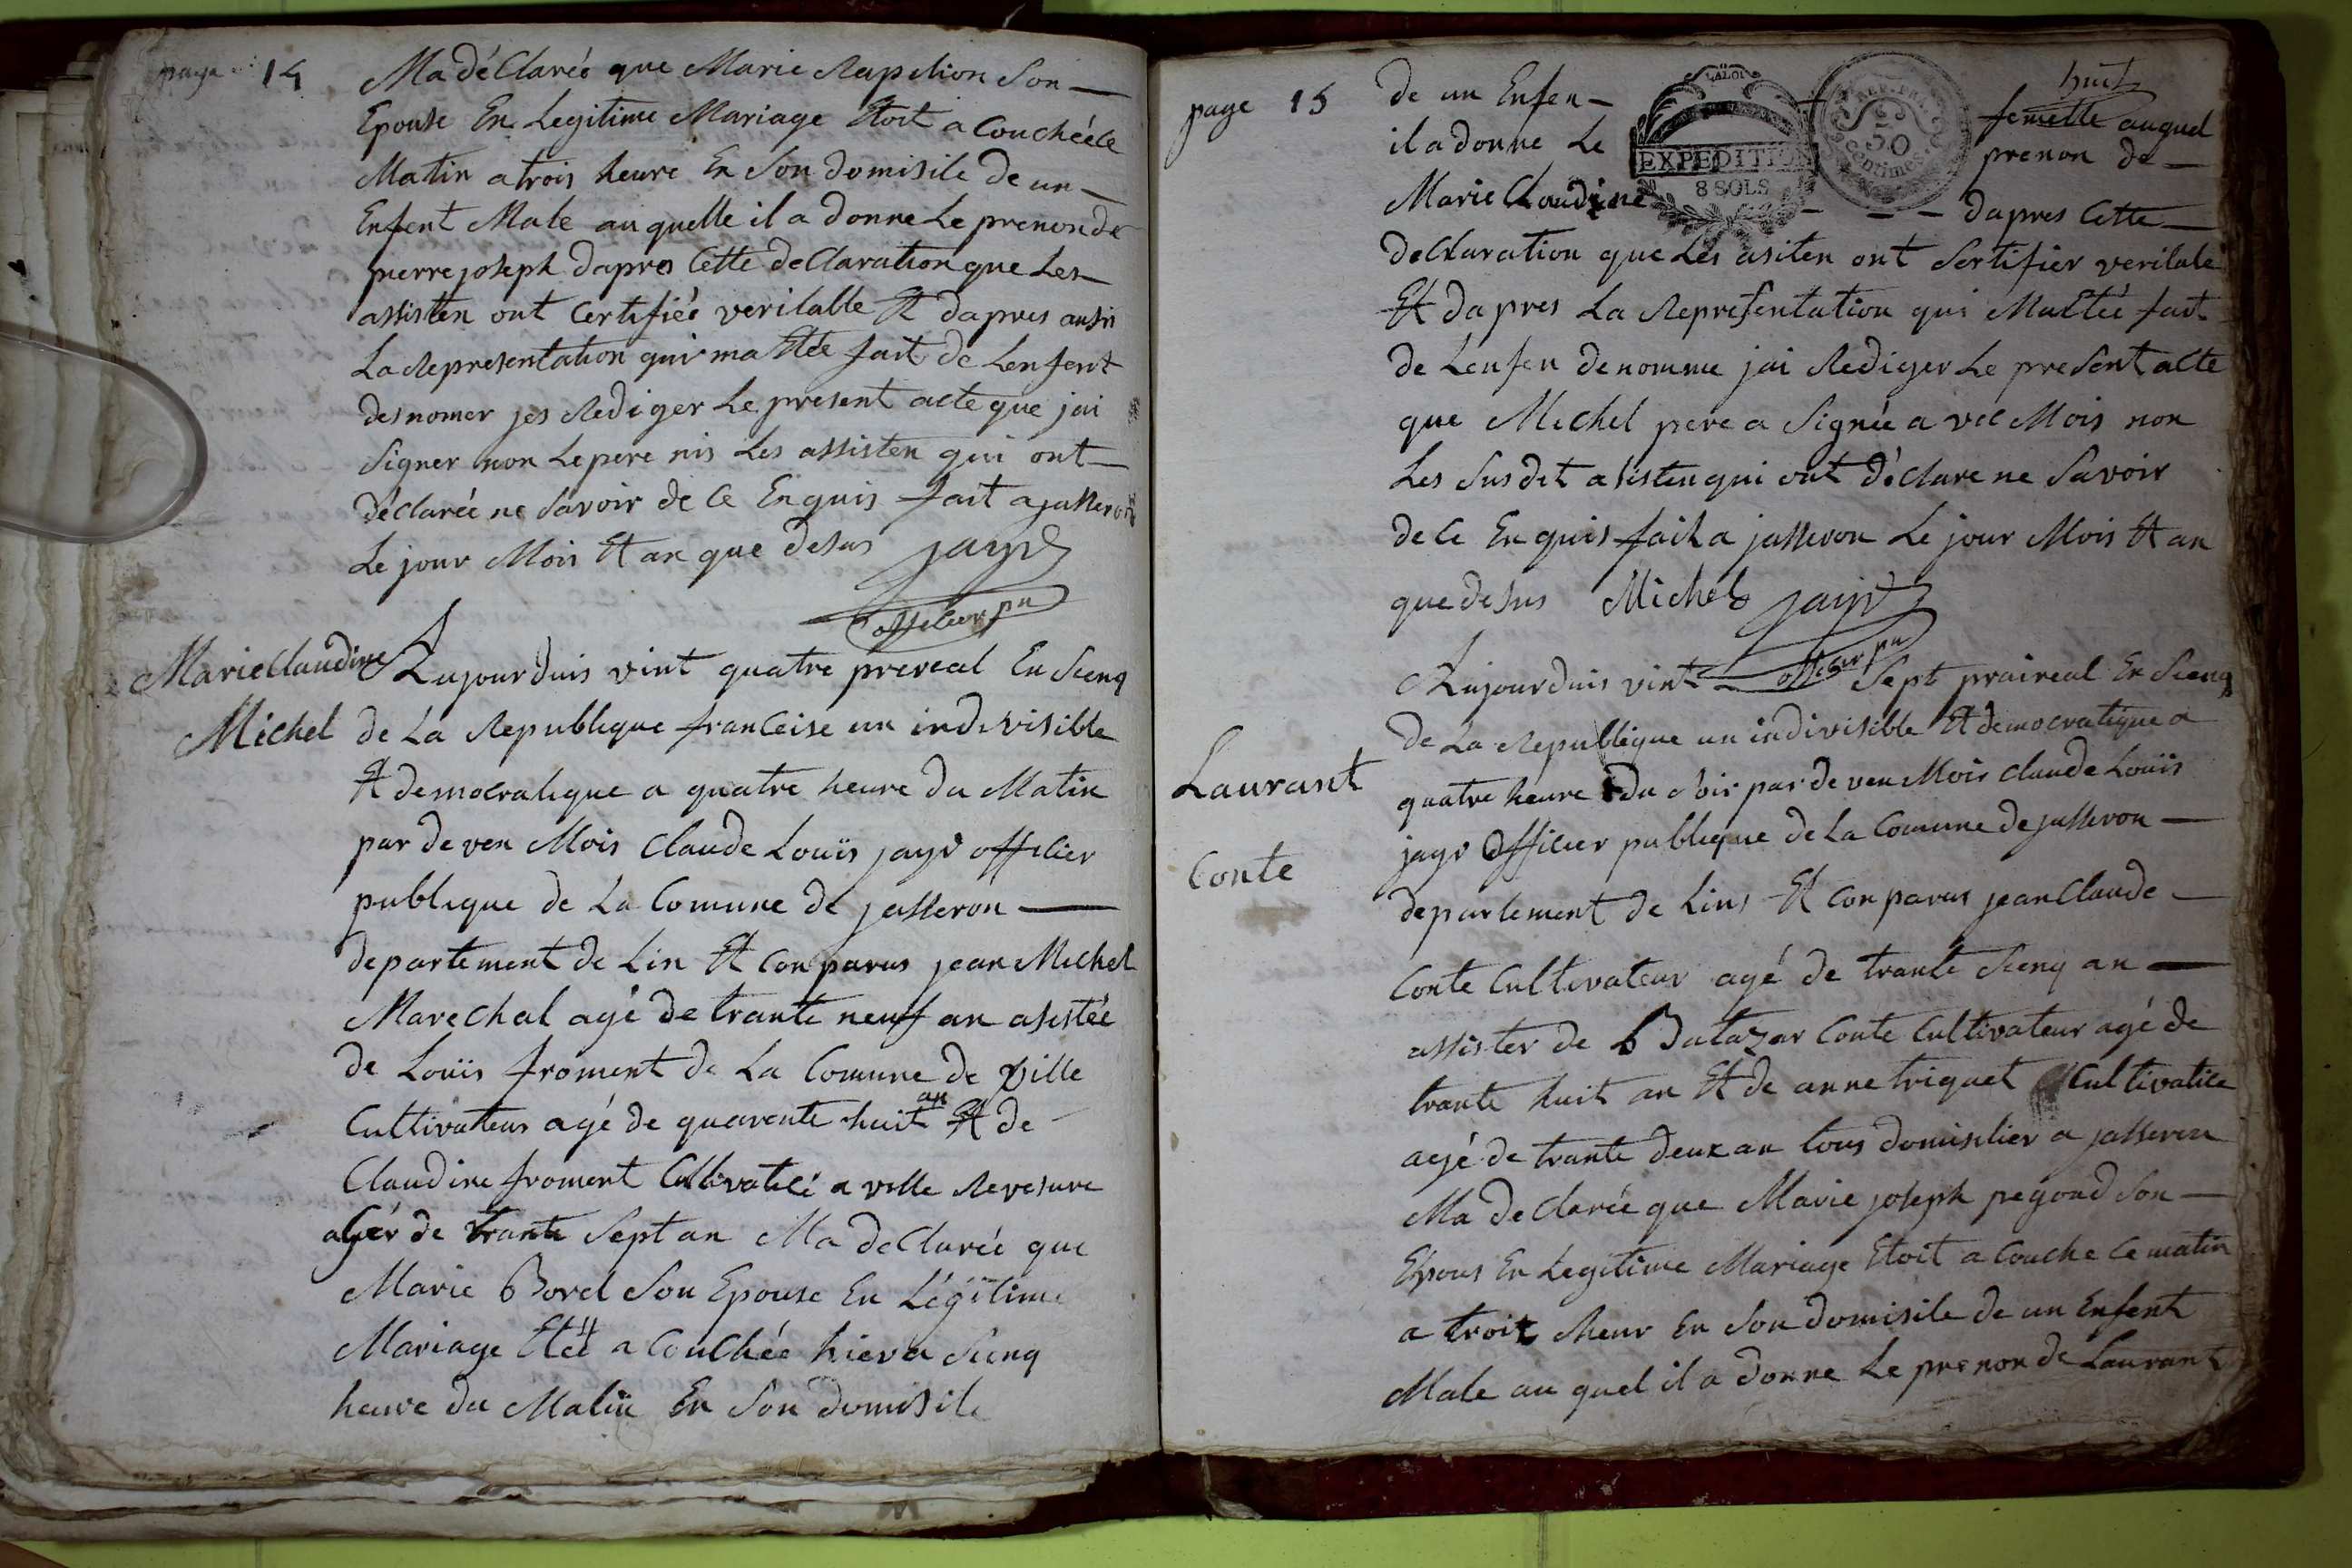 page 14
Ma déClarée que Marie Son
Epouse En Legitime Mariage Etoit a Couchée Ce
Matin a trois heure En Son domisile de un
Enfent Male au quelle il a donne Le prenon de
pierre joseph dapres Cette deClaration que Les
assisten ont Certifiée veritable Et dapres ausis
La Representation qui ma Etée fait de Lenfent
desnomer jes Rediger Le present acte que jai
Signer non Le pere nis Les assisten qui ont
déClarée ne Savoir de Ce Enquis fait a jasseron
Le jour Mois Et an que desus jayr
officier pu
Marie Claudine
Michel
Aujourduis vint quatre prereal En Sienq
de La Republique franCeise un indivisible
Et democratique a quatre heure du Matin
par deven Mois Claude Louïs jayr officier
publique de La Comune de jasseron
departement de Lin Et Conparus jean Michel
Marechal agé de trante neuf an asistée
de Louïs froment de La Comune de ville
Cultivateur agé de quarente huit an Et de
Claudine froment Cultivaticé a ville Revesure
agér de trante Sept an Ma deClarée que
Marie Borel Son Epouse En Légitime
Mariage Etét a Couchée hier a Sienq
heure du Matin En Son domisile
page 15
huit
de un Enfen femelle auquel
il a donne Le prenon de
Marie Claudine dapres Cette
deClaration que Les asiten ont Sertifier veritale
Et dapres La Representation qui Mattée fait
de Lenfen denomme jai Rediger Le present acte
que Michel pere a Signée a vec Mois non
Les Susdit asisten qui ont déClare ne Savoir
de Ce Enquis fait a jasseron Le jour Mois Et an
que desus Michel jayr
officier pu
LA LOI
EXPEDITION
8 SOLS
50
Centimes
Laurant
Conte
Aujourduis vint Sept praireal En Sienq
de La Republique un indivisible Et democratique a
quatre heure du Soir par deven Mois Claude Louïs
jayr officier publique de La Comune de jasseron
departement de Lins Et Conparus jean Claude
Conte Cultivateur agé de trante Sienq an
assister de Batazar Conte Cultivateur agé de
trante huit an Et de anne triquet Cultivatice
agé de trante deux an tous domisilier a jasseron
Ma deClarée que Marie joseph pegoud Son
Epous En Legitime Mariage Etoit a Couche Ce matin
a troit heur En Son domisile de un Enfent
Male au quel il a donne Le prenon de Laurant